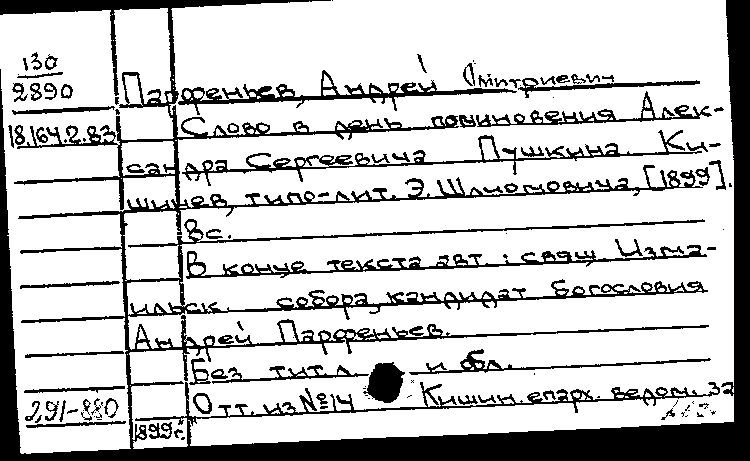 130
2890 Парфеньев, Андрей Дмитриевич
18.164.2.83 Слово в день поминовения Алек-
сандра Сергеевича Пушкина. Ки-
шинев, типо-лит. Э. Шлиомовича, [1899].
8с.
В конце текста авт.: свящ. Изма-
ильск. собора, кандидат богословия
Андрей Парфеньев.
Без тит. л. и обл.
291-880 Отт. из №14 Кишин. епарх. ведом. 32
1899г.